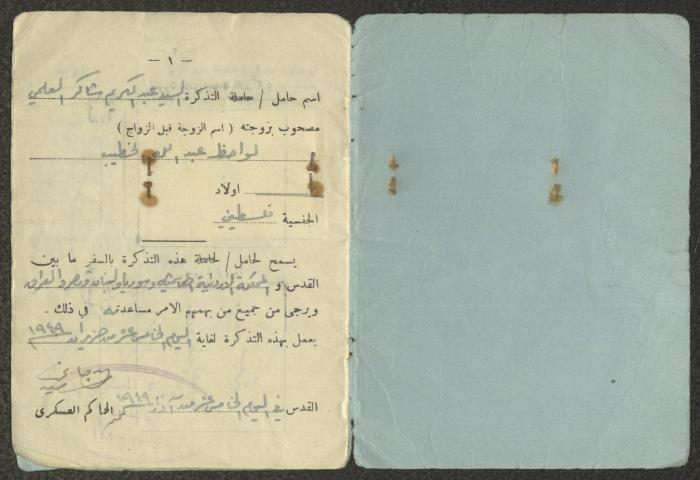 — ١ —
اسم حامل / حاملة التذكرة السيد عبد الكريم شاكر العلمي
مصحوب بزوجته ( اسم الزوجة قبل الزواج )
لواحظ عبد الخطيب
اولاد
الجنسية فلسطيني
يسمح لحامل / لحاملة هذه التذكرة بالسفر ما بين
القدس و المملكة الاردنية الهاشمية وسوريا ولبنان ومصر والعراق
ويرجى من جميع من يهمهم الامر مساعدته في ذلك .
يعمل بهذه التذكرة لغاية اليوم الخامس عشر من حزيران ١٩٤٩
القدس في اليوم الخامس عشر من آذار ١٩٤٩ الحاكم العسكرى